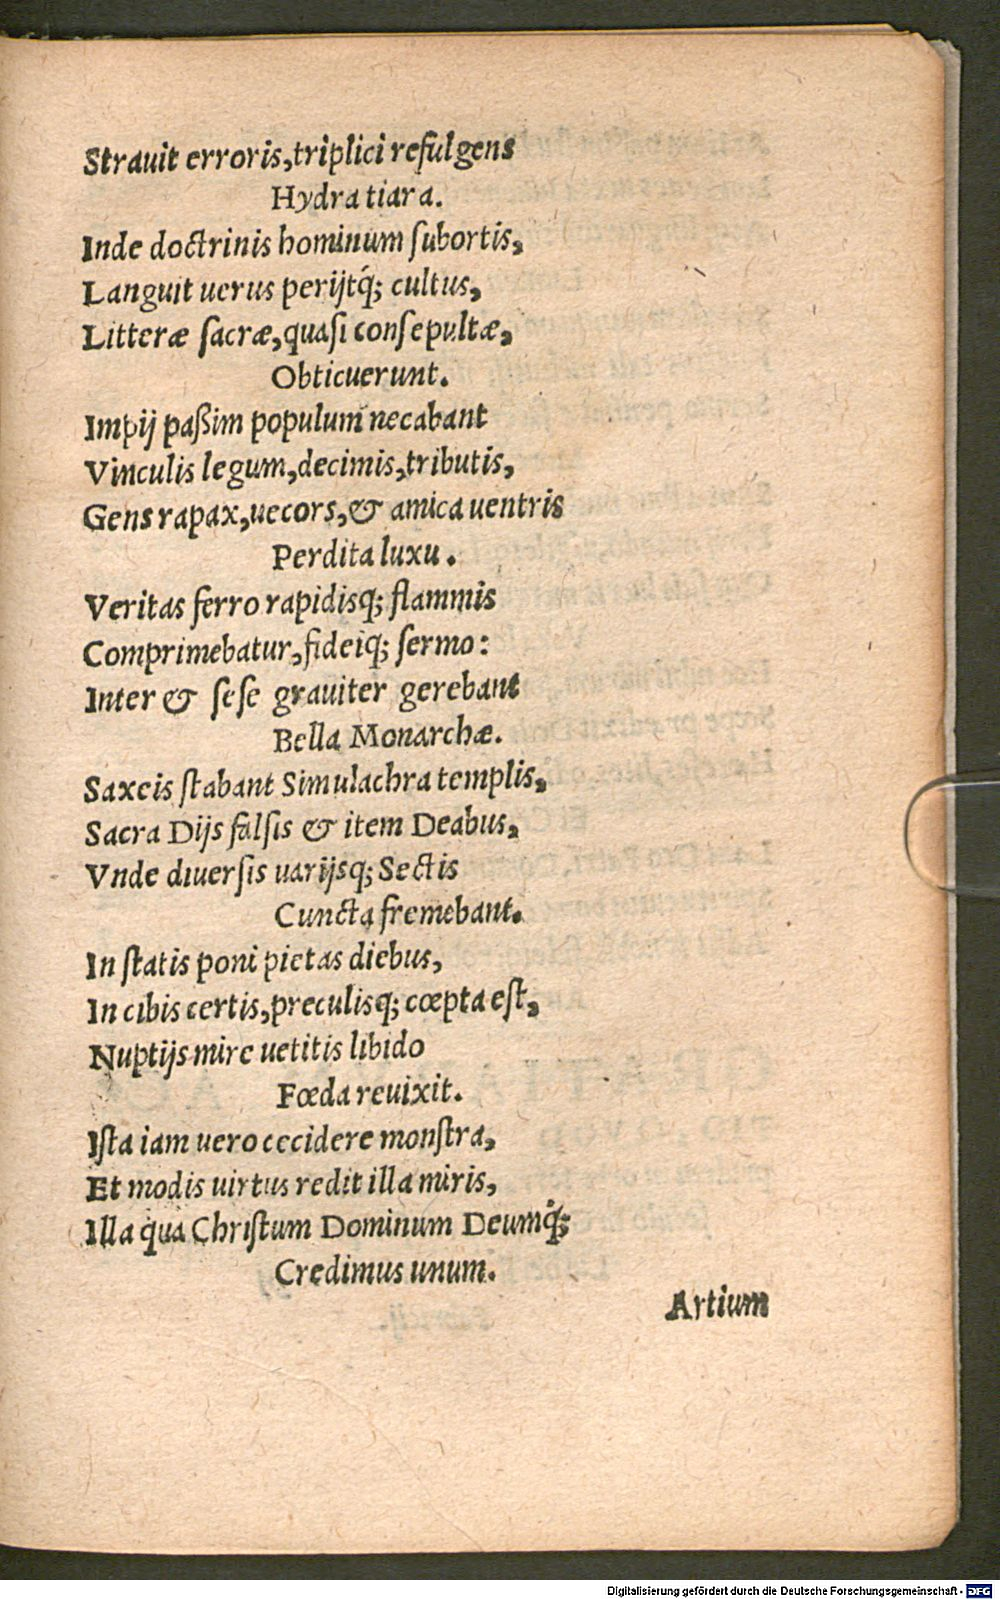 Strauit erroris, triplici refulgens
Hydra tiara.
Inde doctrinis hominum subortis,
Languit uerus perijtq́; cultus,
Litteræ sacræ, quasi consepultæ,
Obticuerunt.
Impij paßim populum necabant
Vinculis legum, decimis, tributis,
Gens rapax, uecors, & amica uentris
Perdita luxu.
Veritas ferro rapidisq; flammis
Comprimebatur, fideiq; sermo:
Inter & sese grauiter gerebant
Bella Monarchæ.
Saxeis stabant Simulachra templis,
Sacra Dijs falsis & item Deabus,
Vnde diuersis uarijsq; Sectis
Cuncta fremebant.
In statis poni pietas diebus,
In cibis certis, preculisq; cœpta est,
Nuptijs mire uetitis libido
Fœda reuixit.
Ista iam uero cecidere monstra,
Et modis uirtus redit illa miris,
Illa qua Christum Dominum Deumq́;
Credimus unum.
Artium
Digitalisierung gefördert durch die Deutsche Forschungsgemeinschaft - DFG